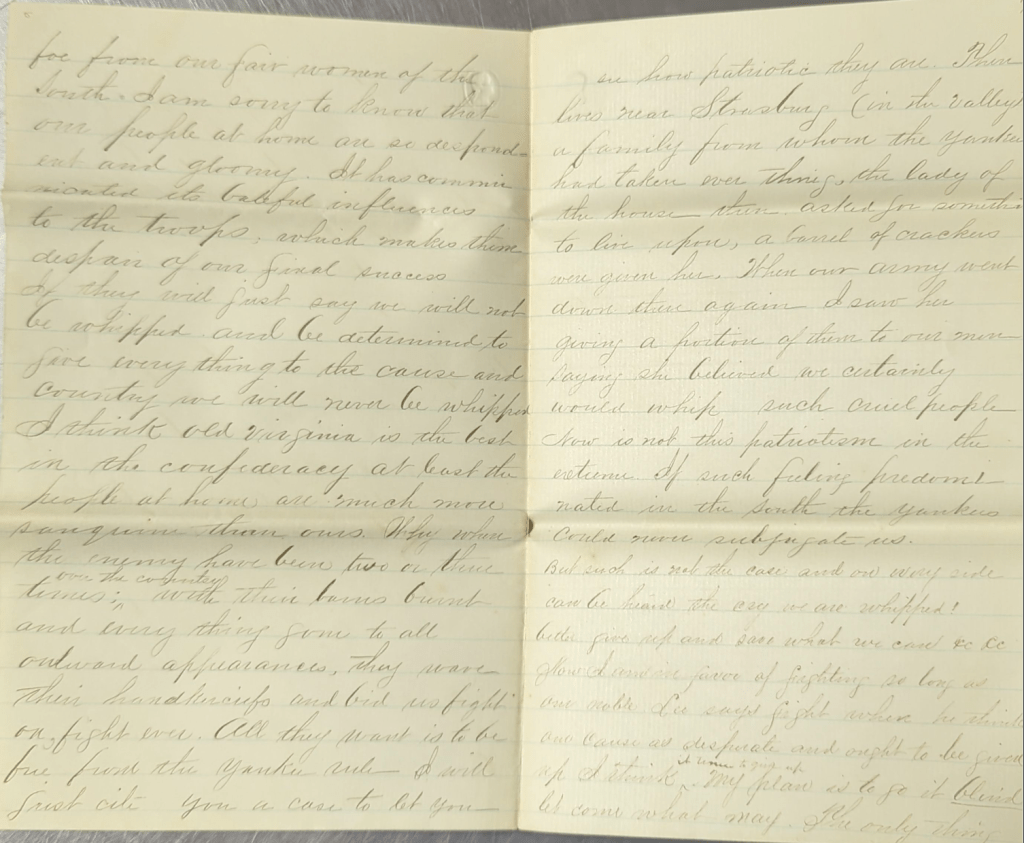 foe from our fair women of the
South. I am sorry to know that
our people at home are so despond-
ent and gloomy. It has commu
nicated its baleful influences
to the troops, which makes them
despair of our final success
If they will just say we will not
be whipped and be determined to
give every thing to the cause and
country we will never be whipped
I think old Virginia is the best
in the confederacy at least the
people at home are much more
sanguine than ours. Why when
the enemy have been two or three
over the country
times; with their barns burnt
and every thing gone to all
outward appearances, they wave
their handkercifs and bid us fight
on, fight ever. All they want is to be
free from the Yankee rule I will
just cite you a case to let you
see how patriotic they are. There
lives near Strasburg (in the valley)
a family from whom the Yankees
had taken ever thing, the lady of
the house then asked for somethi
to live upon, a barrel of crackers
were given her. When our army went
down there again I saw her
giving a portion of them to our men
saying she believed we certainly
would whip such cruel people
Now is not this patriotism in the
extreme. If such feeling predomi
nated in the South the Yankees
could never subjugate us.
But such is not the case and on evry side
can be heard the cry we are whipped!
better give up and save what we can &c &c
Now I am in favor of fighting so long as
our noble Lee says fight when he thinks
our cause as desperate and ought to be given
it time to give up
up I think My plan is to go it blind
let come what may. The only thing